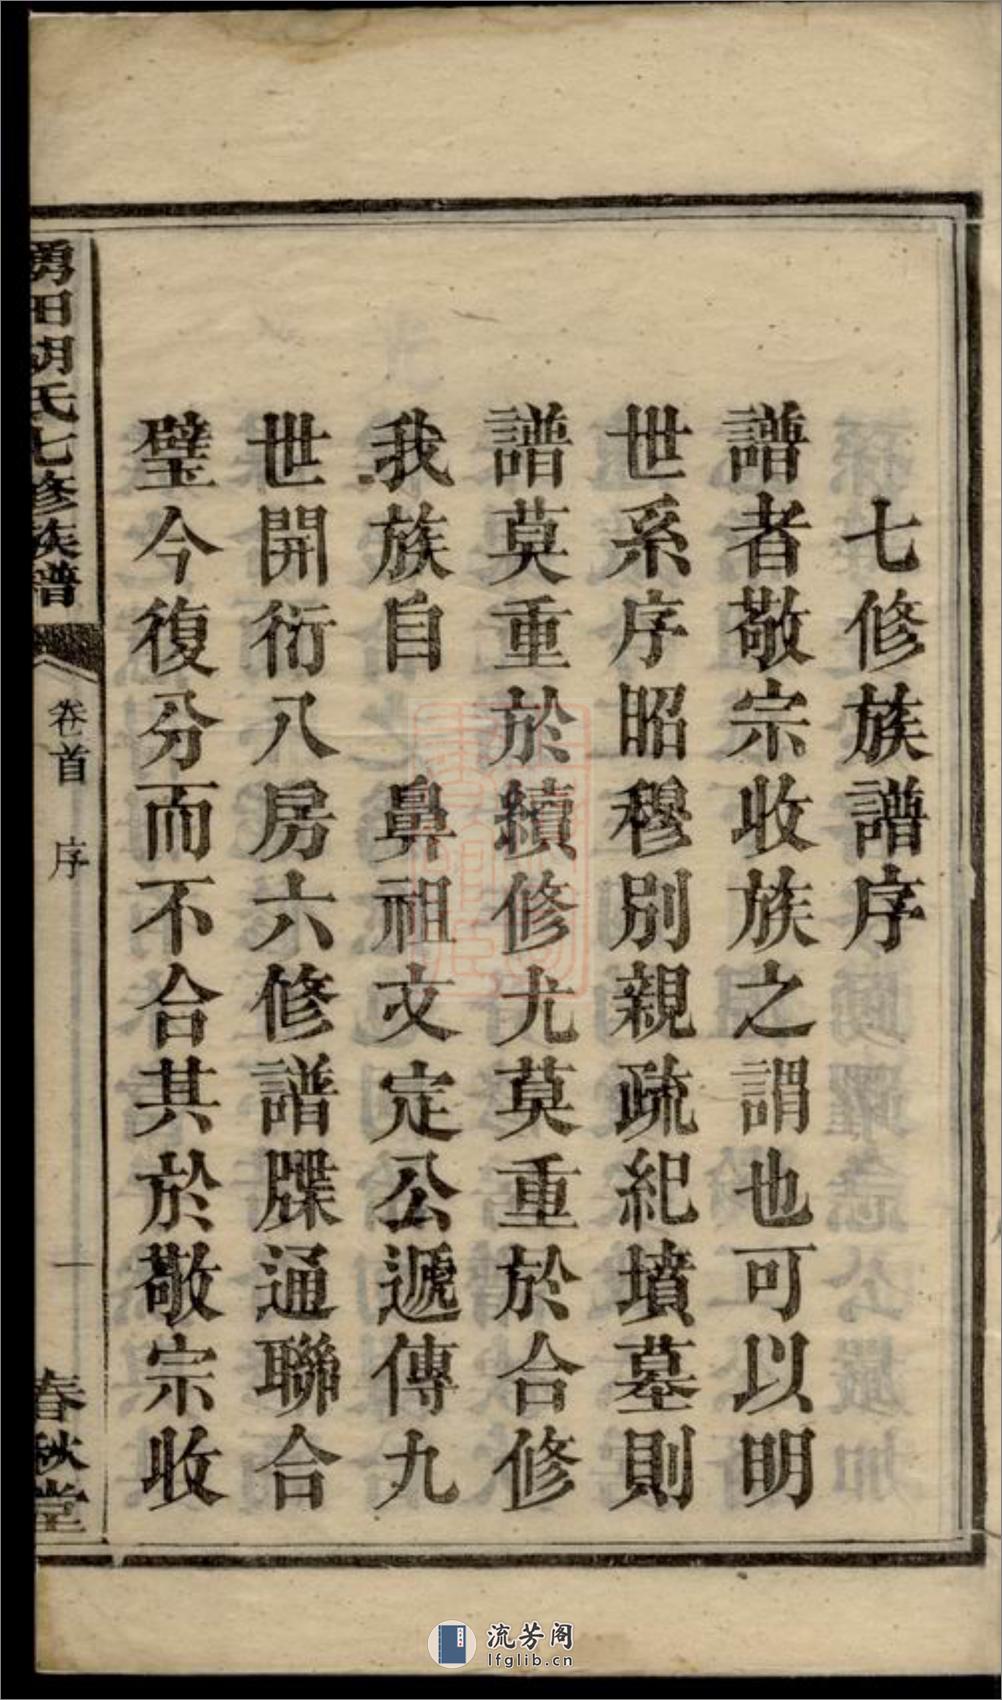 七修族譜序
譜者敬宗收族之謂也可以明
世系序昭穆別親疏紀墳墓則
譜莫重於續修尤莫重於合修
我族自 鼻祖文定公遞傳九
世開衍八房六修譜牒通聯合
璧今復分而不合其於敬宗收
田胡氏七修族譜
卷首 序
一
春秋堂
流芳阁
lfglib.cn